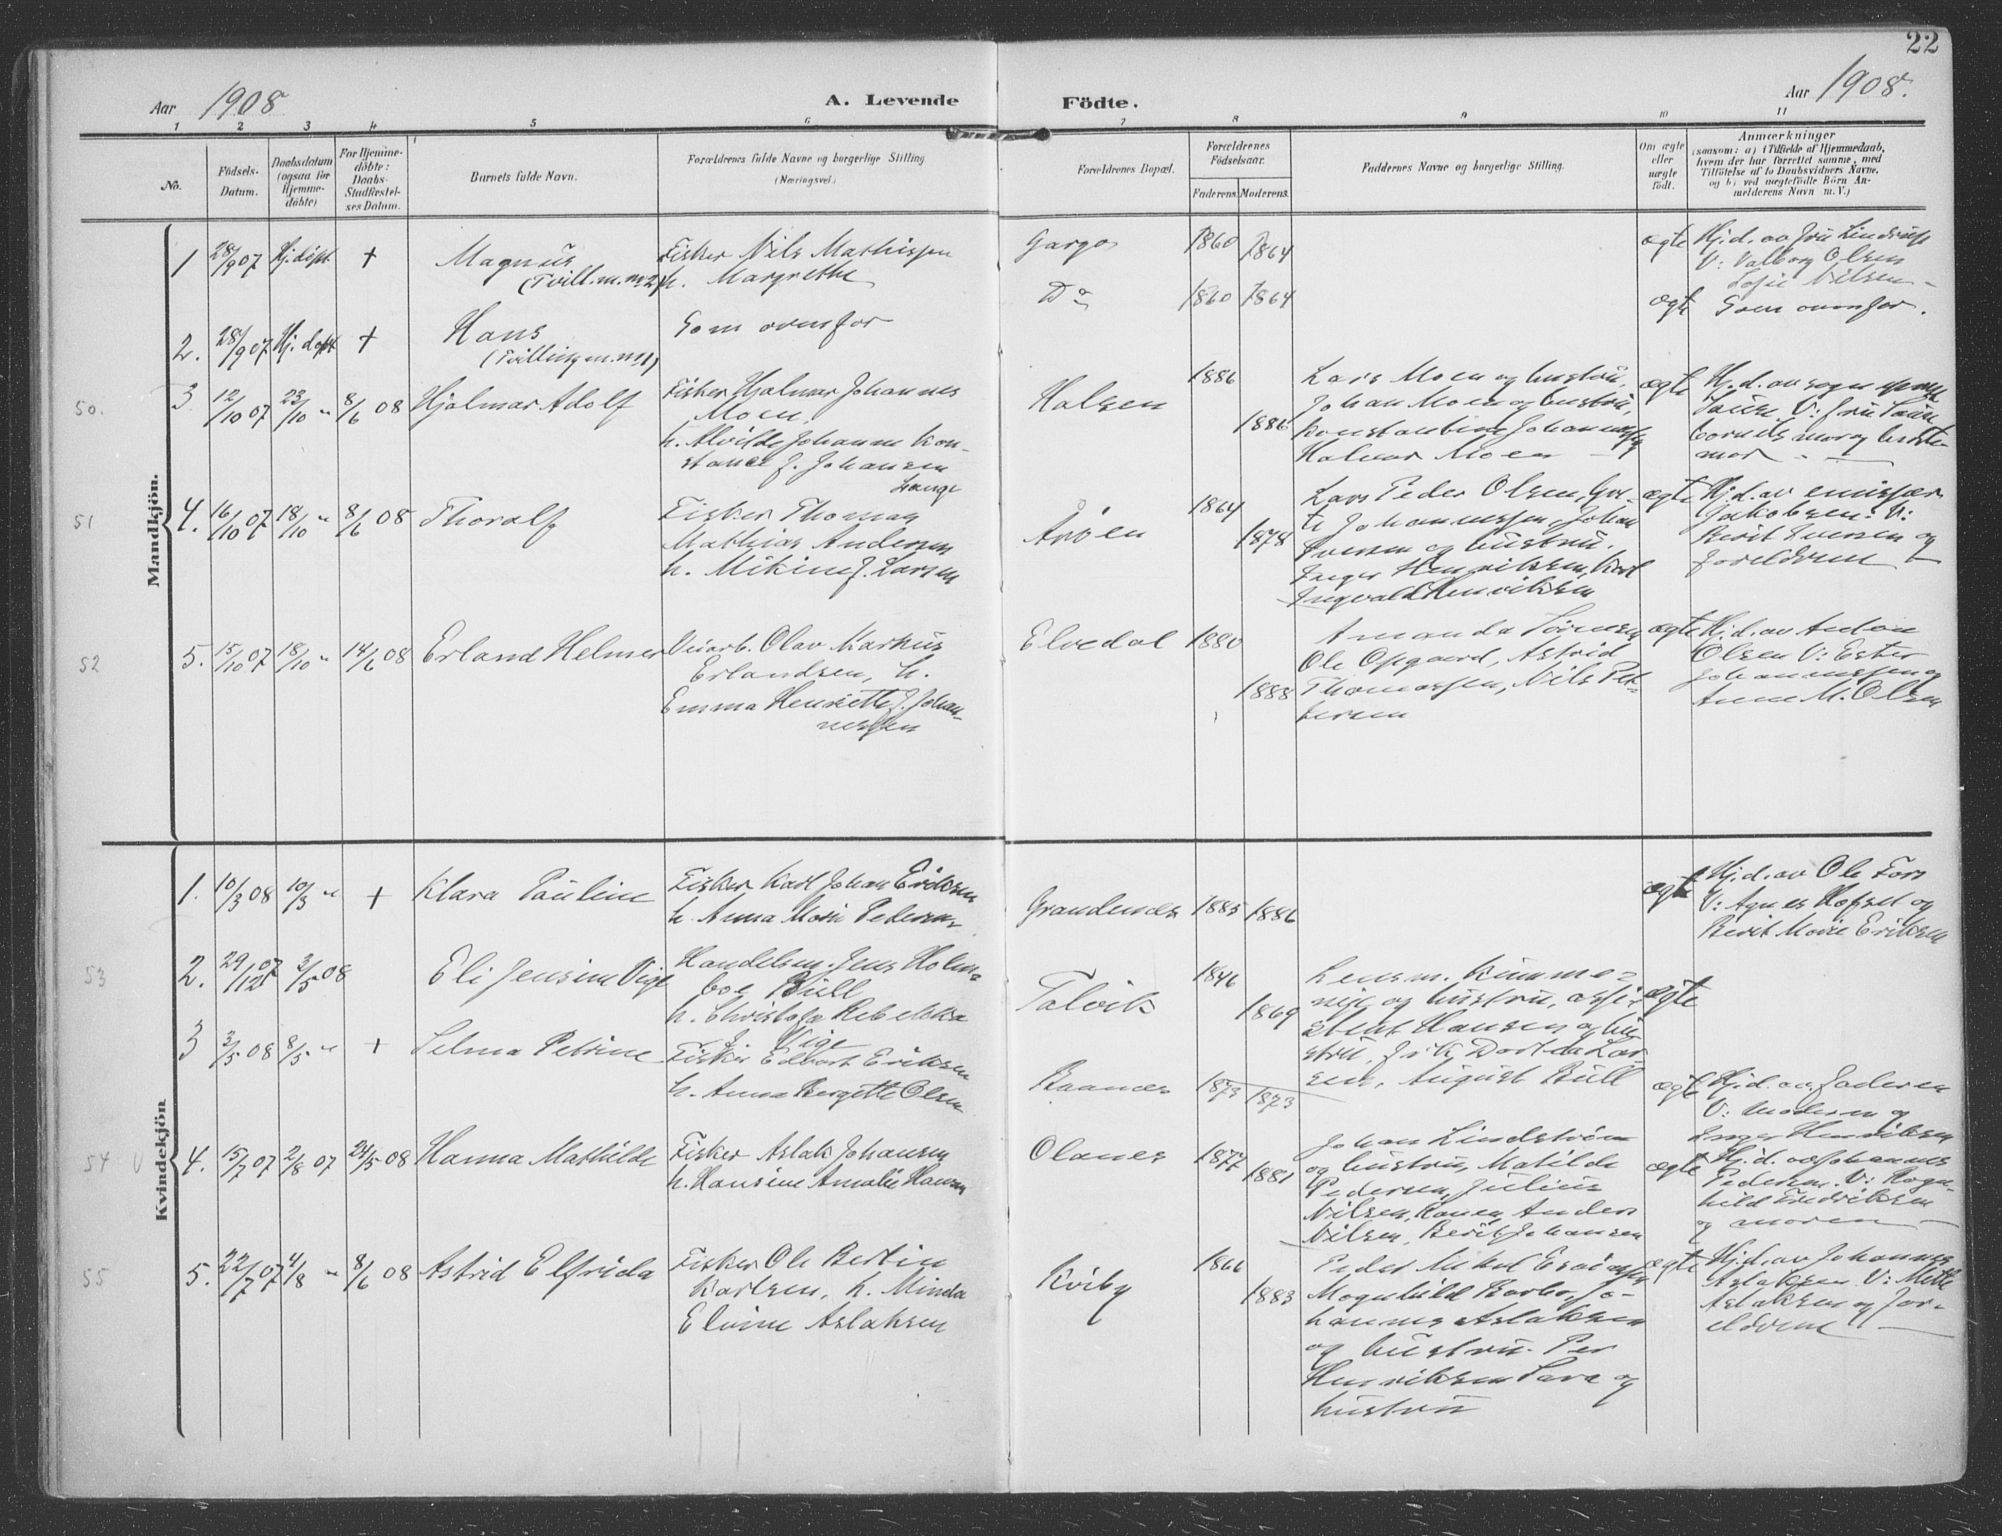 22
Aar 1908
A. Levende Födte.
Aar 1908.
1 2 3 4 5 6 7 8 9 10 11
No.
Födsels-
Datum.
Daabsdatum
(ogsaa for
Hjemme-
döbte)
For Hjemme-
döbte:
Daabs-
Stadfæstel-
ses Datum.
Barnets fulde Navn.
Forældrenes fulde Navne og borgerlige Stilling
(Næringsvei.)
Forældrenes Bopæl.
Forældrenes
Födselsaar.
Faderens. Moderens.
Faddernes Navne og borgerlige Stilling.
Om ægte
eller
uægte
födt.
Anmærkninger
(saasom: a) i Tilfælde af Hjemmedaab,
hvem der har forrettet samme, med
Tilföielse af to Daabsvidners Navne,
og b) ved uægtefödte Börn An-
melderens Navn m. V.)
Mandkjön.
1 28/9 07 Hj.döpt + Magnus
(Tvill. m. nr 2)
Fisker Nils Mathissen
h. Margrethe
Gargo 1860 1864
ægte
Hj.d. av fru Lindrup
V: Valborg Olsen
Sofie Nilsen
2. 28/9 07 Hj. döpt + Hans
(Tvilling m. nr 1)
Som ovenfor
Do 1860 1864
ægte
Som ovenfor.
50. 3 12/10 07 23/10 " 8/6 08 Hjalmar Adolf
Fisker Hjalmar Johannes
Moen,
h. Alvilde Johanne Kon-
stance f. Johansen
Lange
Halsen 1886 1886
Lars Moen og hustru,
Johan Moen og hustru,
Konstantin
Halvar Moen
ægte
Hj.d. av sogneprest
V: fru
barnets mor og beste-
mor
51 4. 16/10 07 18/10 " 8/6 08 Thoralf
Fisker Thomas
Mathias Andersen
h. Mikine f. Larsen
Årøen 1864 1878
Lars Peder Olsen,
Johannessen, Johan
Iversen og hustru.
Inger Henriksen, Karl
Ingvald Henriksen
ægte
Hj.d. av emissær
Jakobsen. V:
Berit Iversen og
foreldrene
52 5. 15/10 07 18/10 " 14/6 08 Erland Helmer
Veiarb. Olav Markus
Erlandsen, h.
Emma Henriette f. Johan-
nessen
Elvedal 1880 1888
Amanda
Ole Opgaard, Astrid
Thomassen, Nils Pet-
tersen
ægte
Hj.d. av Anton
Olsen V: Ester
Johannessen og
Anne M. Olsen
Kvindekjön
1. 10/3 08 10/3 " + Klara Pauline
Fisker Karl Johan Eriksen
h. Anna Marie Pedersen
Grandenes 1885 1886
ægte
Hj.d. av Ole Fors
V: Agnes Hofset og
Berit Marie Eriksen
53 2. 29/12 07 3/5 08 Eli Jensine Vige
Handelsm. Jens Holm-
boe Bull
h. Christofa Rebekka
f. Vige
Talvik 1846 1869
Lensm. Kumme-
neje og hustru, assi-
stent Hansen og hu-
stru, frk Dortea Lar-
sen, August Bull
ægte
3 3/5 08 8/5 " + Selma Petrine
Fisker Edvart Eriksen
h. Anna Bergitte Olsen
1873 1873
ægte
Hj.d. av faderen
V: moderen og
Inger Henriksen
54 4. 15/7 07 2/8 07 24/5 08 Hanna Mathilde
Fisker Aslak Johansen
h. Hansine Amalie Hansen
Olanes 1877 1881
Johan Lindstrøm
og hustru, Matilde
Pedersen, Julius
Nilsen, Anders
Nilsen, Berit Johansen
ægte
Hj.d. av Johannes
Pedersen. V: Ragn-
hild Fredriksen
og moren
55 5. 22/7 07 4/8 " 8/6 08 Astrid Elfrida
Fisker Ole Bertin
Karlsen, h. Minda
Elvine Aslaksen
Kviby 1866 1883
Peder Mikal
Magnhild Barbo, Jo-
hannes Aslaksen
og hustru. Per
Henriksen Sara og
hustru
ægte
Hj.d. av Johannes
Aslaksen. V: Mette
Aslaksen og for-
eldrene